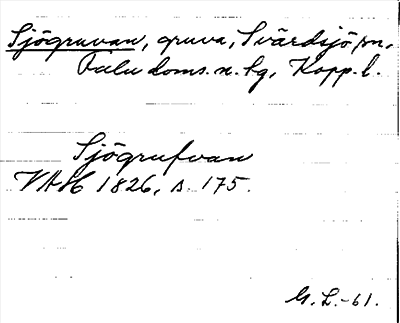 Sjögruvan, gruva, Svärdsjö sn,
Falu doms. n. tg, Kopp. l.
Sjögrufvan
VAH 1826, s. 175.
G. L. -61.